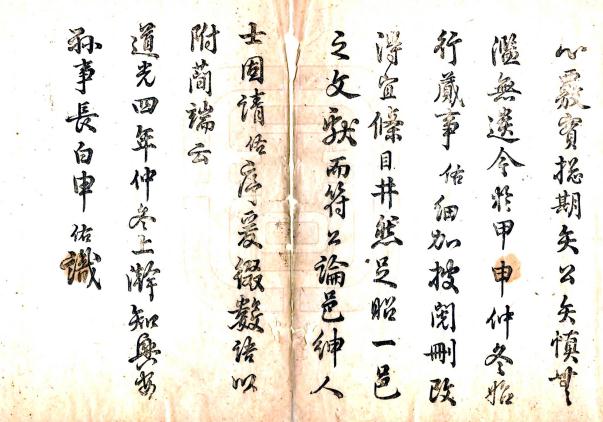 心覈實摠期至公至慎無
濫無遺今於甲申仲冬始
行蕆事佑細加披閱刪改
得宜條目井然足昭一邑
之文獻而符公論邑紳人
士固請佑序爰綴數語以
附簡端云
道光四年仲冬上澣知興安
縣事長白申佑識